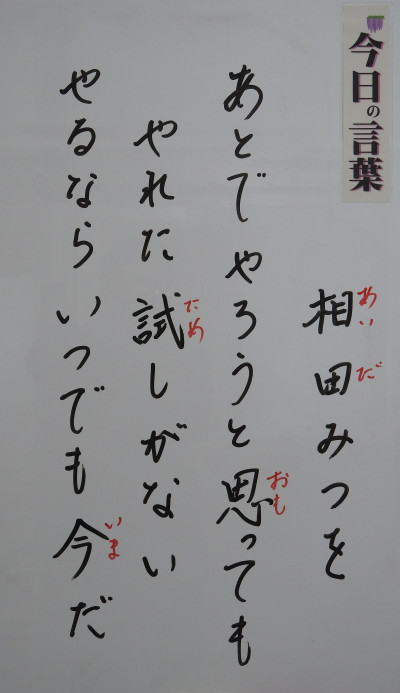 今日の言葉
相田みつを
あいだ
あとでやろうと思っても
おも
やれた試しがない
ため
やるならいつでも今だ
いま